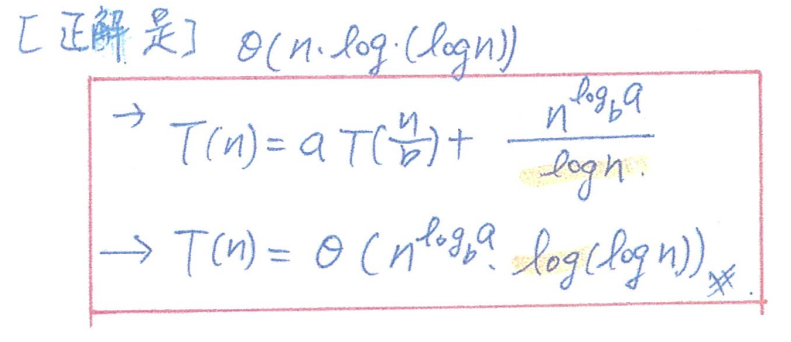 [正解是] θ(n·log·(logn))
→ T(n) = a T(n/b) + n^{log_b a} / logn.
→ T(n) = θ(n^{log_b a}. log(logn)) ※.